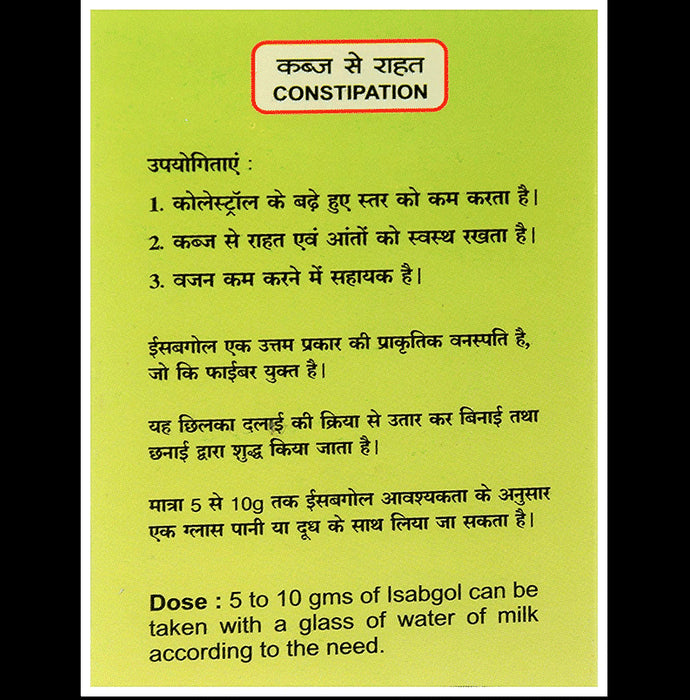 कब्ज से राहत
CONSTIPATION
उपयोगिताएं :
1. कोलेस्ट्रॉल के बढ़े हुए स्तर को कम करता है।
2. कब्ज से राहत एवं आंतों को स्वस्थ रखता है।
3. वजन कम करने में सहायक है।
ईसबगोल एक उत्तम प्रकार की प्राकृतिक वनस्पति है,
जो कि फाईबर युक्त है।
यह छिलका दलाई की क्रिया से उतार कर बिनाई तथा
छनाई द्वारा शुद्ध किया जाता है।
मात्रा 5 से 10g तक ईसबगोल आवश्यकता के अनुसार
एक ग्लास पानी या दूध के साथ लिया जा सकता है।
Dose : 5 to 10 gms of Isabgol can be
taken with a glass of water of milk
according to the need.